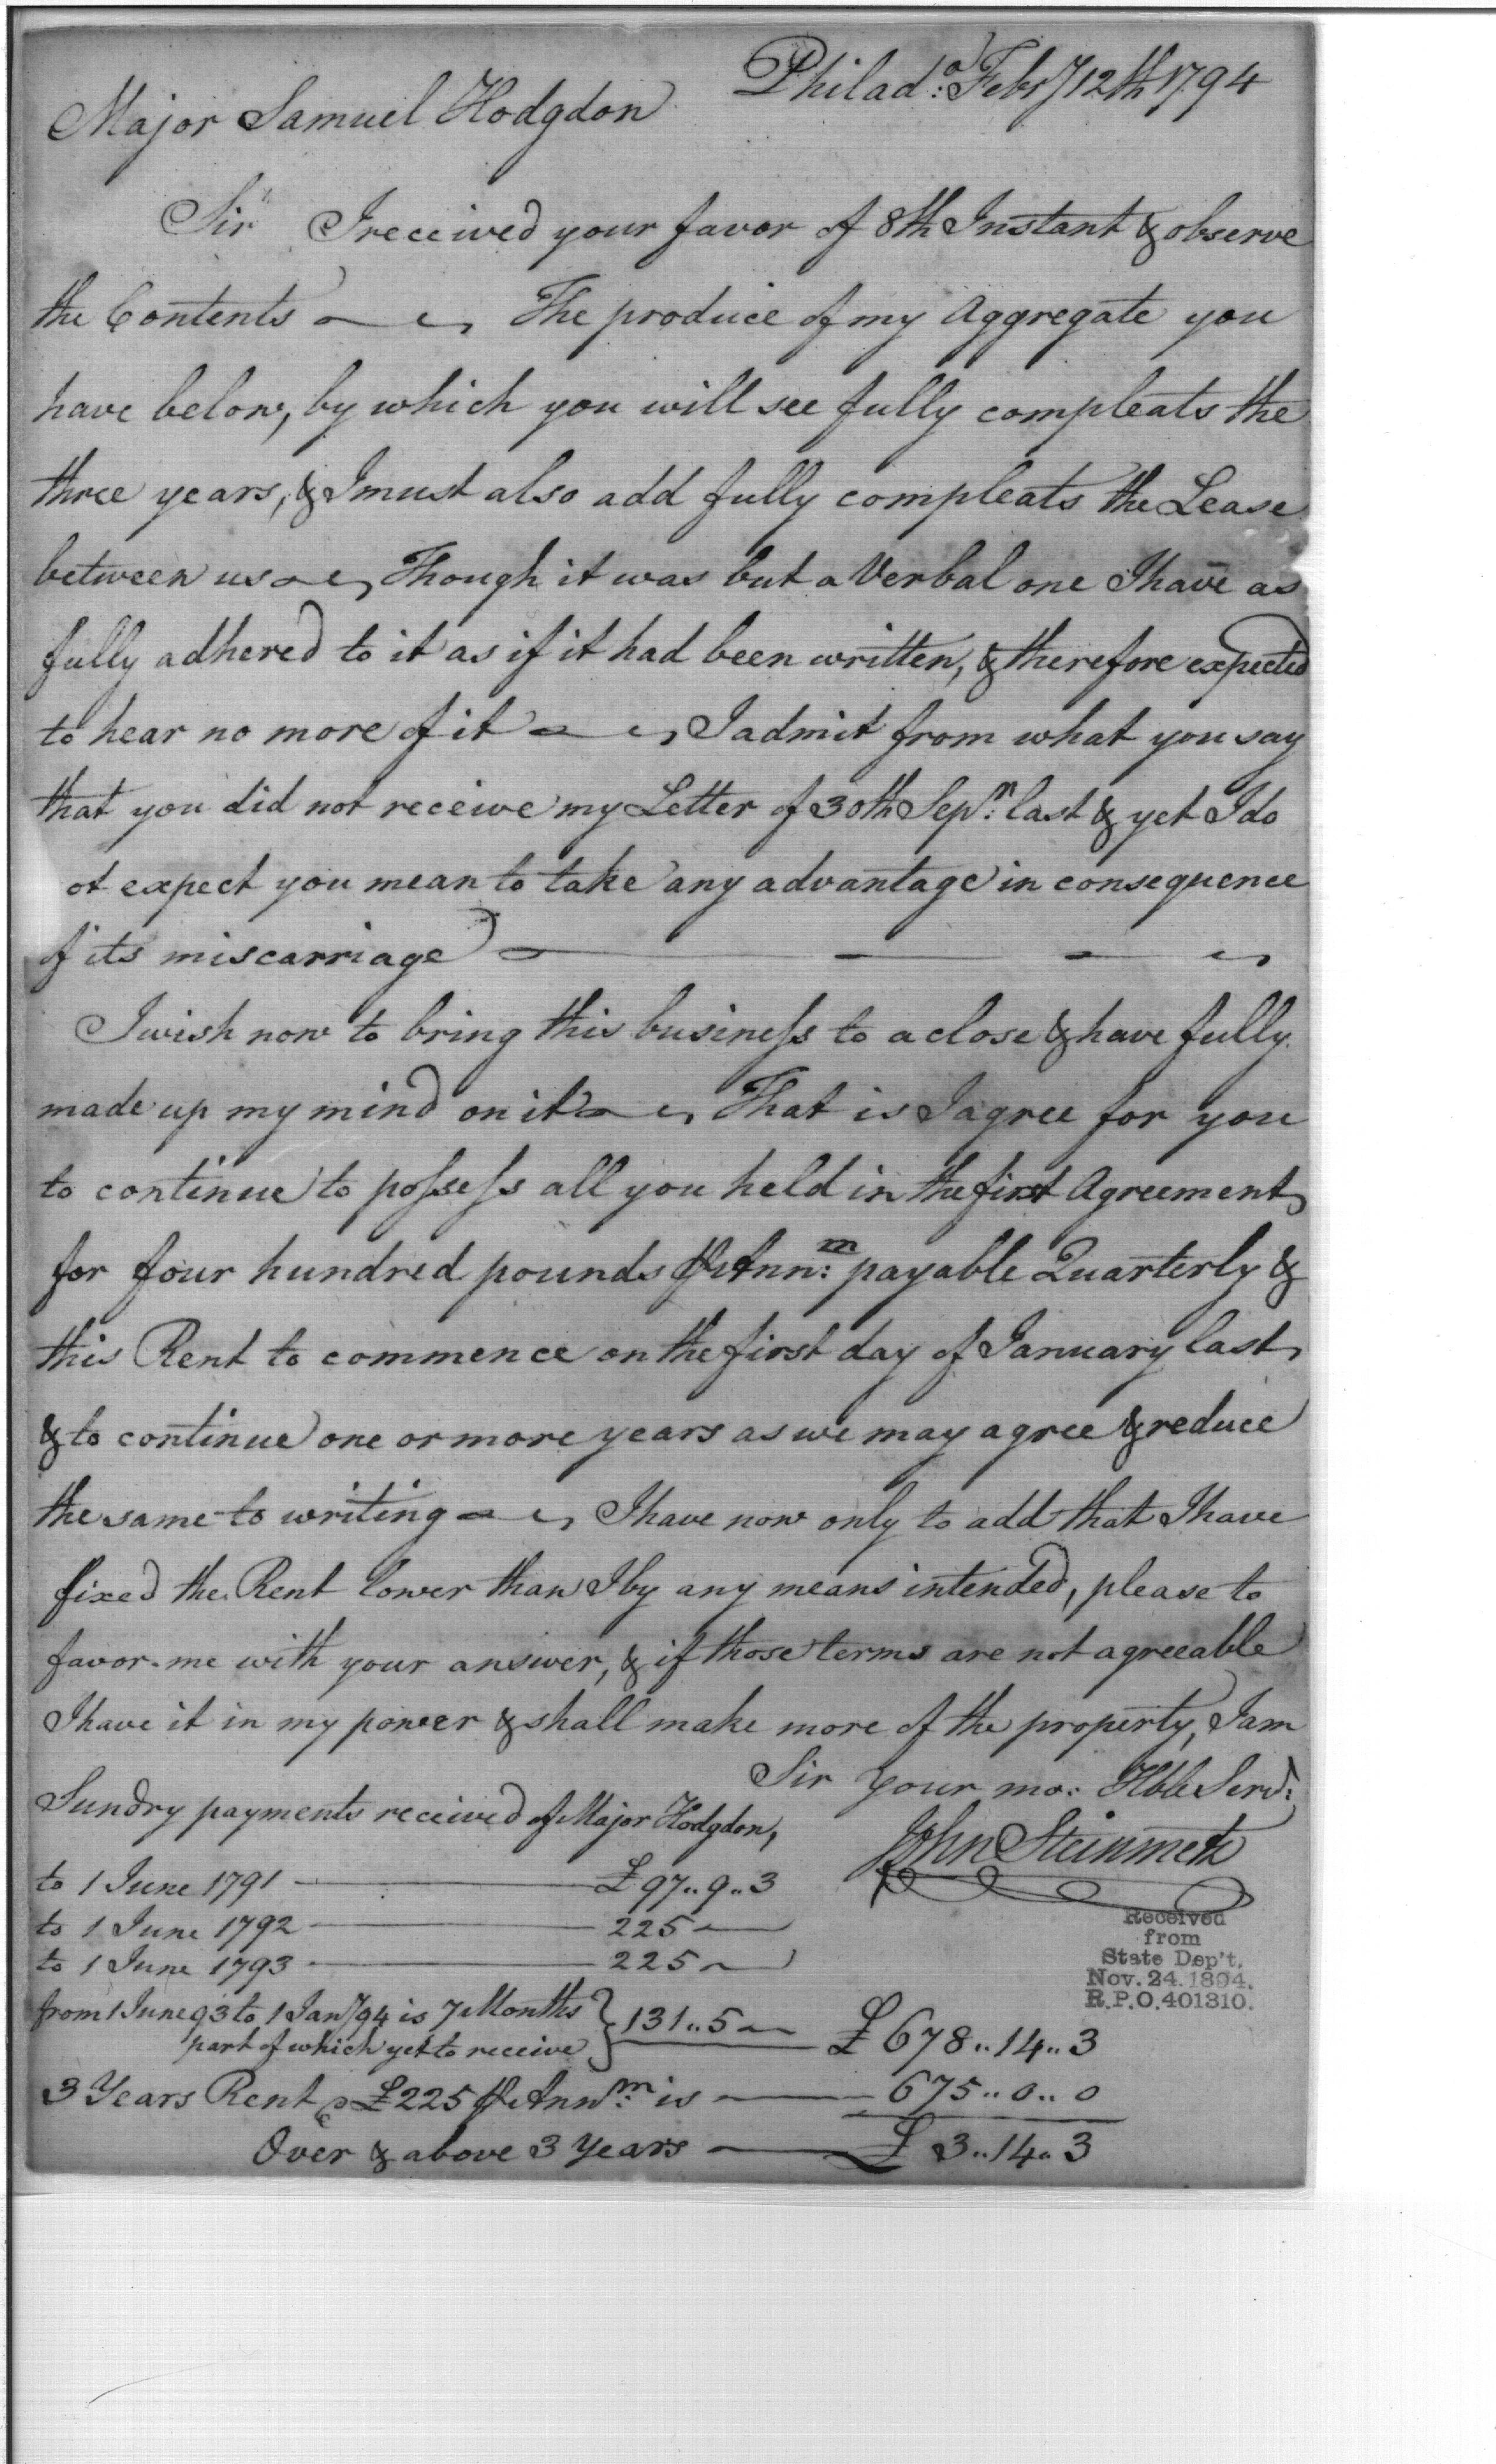 Philad:ª Feb:y 12th 1794
Major Samuel Hodgdon
Sir I received your favor of 8th Instant & observe
the Contents — The produce of my Aggregate you
have below, by which you will see fully compleats the
three years, & I must also add fully compleats the Lease
between us — Though it was but a Verbal one I have as
fully adhered to it as if it had been written, & therefore expected
to hear no more of it — I admit from what you say
that you did not receive my Letter of 30th Sep:r last & yet I do
ot expect you mean to take any advantage in consequence
of its miscarriage —
I wish now to bring this business to a close & have fully
made up my mind on it — That is I agree for you
to continue to possess all you held in the first Agreement
for four hundred pounds ⅌ Ann:m payable Quarterly &
this Rent to commence on the first day of January last,
& to continue one or more years as we may agree & reduce
the same to writing — I have now only to add that I have
fixed the Rent lower than I by any means intended, please to
favor me with your answer, & if those terms are not agreeable
I have it in my power & shall make more of the property, I am
Sir Your mo: Hble Serv:t
John Steinmetz
Sundry payments received of Major Hodgdon,
to 1 June 1791 — £97..9..3
to 1 June 1792 — 225 —
to 1 June 1793 — 225 —
from 1 June 93 to 1 Jan:y 94 is 7 Months } 131..5 — £678..14..3
part of which yet to receive
3 Years Rent @ £225 ⅌ Ann:m is — 675..0..0
Over & above 3 Years — £ 3..14..3
Received
from
State Dep't.
Nov. 24. 1894.
R.P.O. 401310.